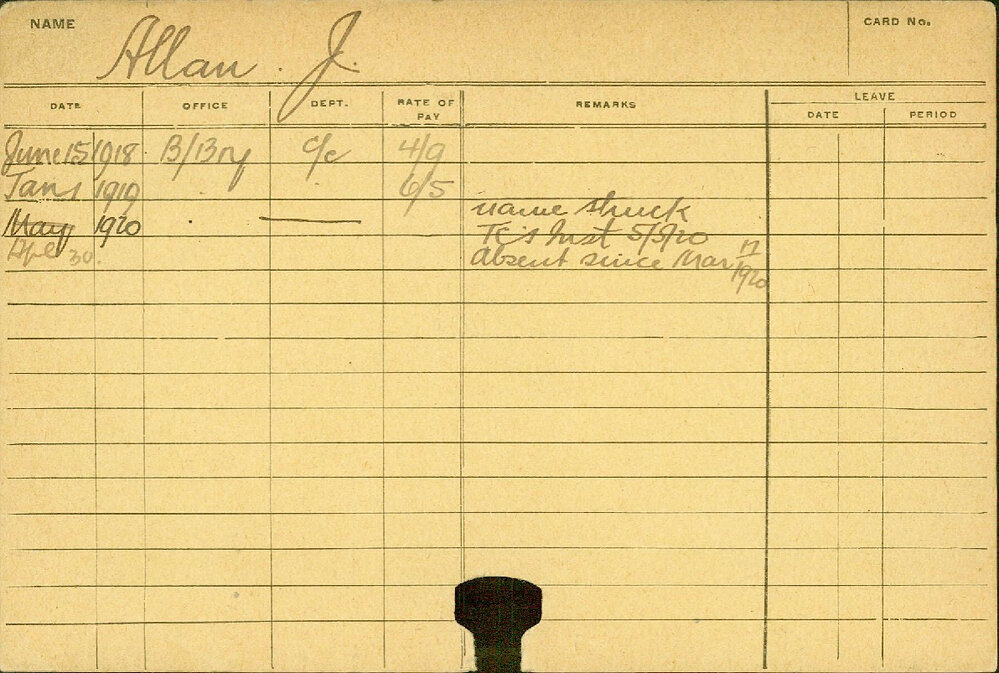 NAME Allan. J. CARD No.
DATE OFFICE DEPT. RATE OF PAY REMARKS LEAVE
DATE PERIOD
June 15 1918 B/Bry c/c 4/9
Jan 1 1919 6/5
May 1920 name struck
Tc's Inst 5/5/20
Apl 30. absent since Mar 17
1920